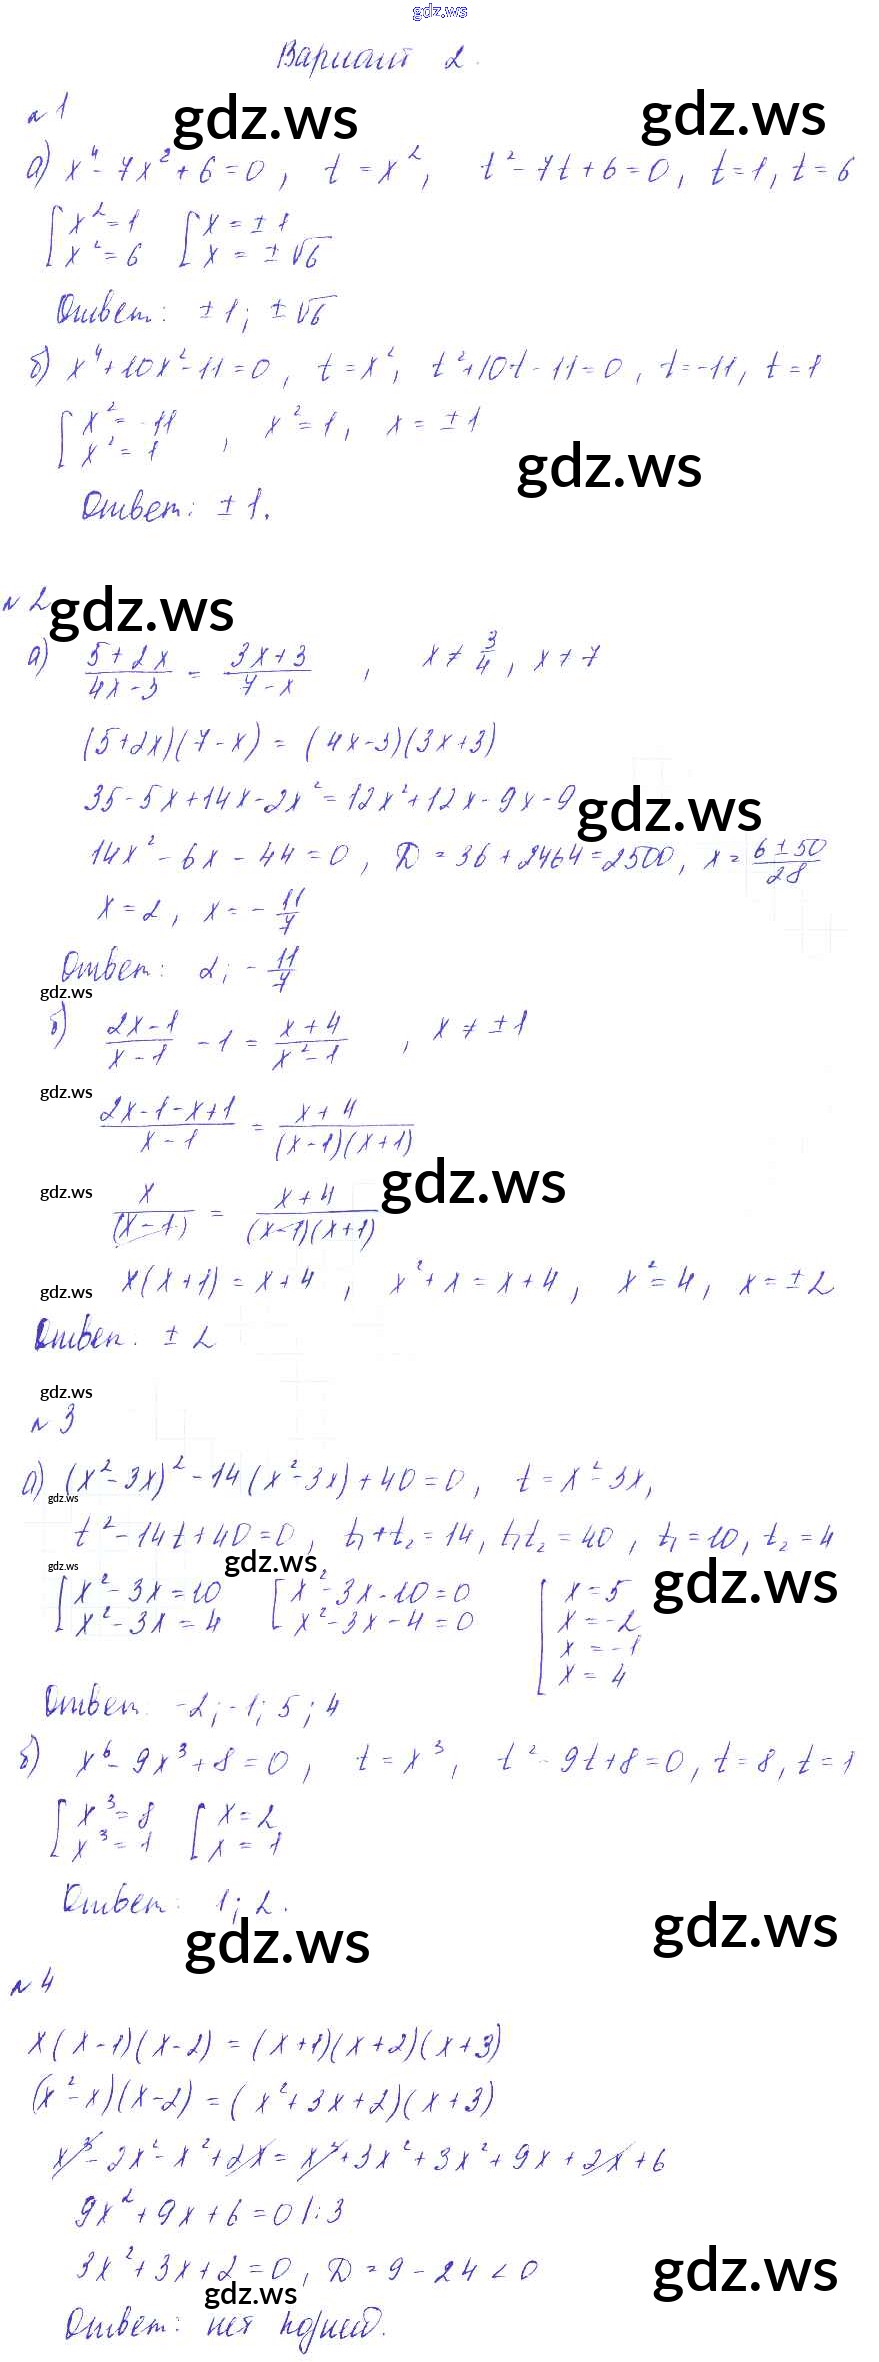 gdz.ws
Вариант 2.
№ 1
gdz.ws gdz.ws
а) x⁴ - 7x² + 6 = 0, t = x², t² - 7t + 6 = 0, t = 1, t = 6
[x² = 1 [x = ± 1
x² = 6 x = ± √6
Ответ: ± 1; ± √6
б) x⁴ + 10x² - 11 = 0, t = x², t² + 10t - 11 = 0, t = -11, t = 1
[x² = -11
x² = 1 , x² = 1, x = ± 1
gdz.ws
Ответ: ± 1.
№ 2
gdz.ws
а) (5 + 2x)/(4x - 3) = (3x + 3)/(7 - x) , x ≠ 3/4, x ≠ 7
(5 + 2x)(7 - x) = (4x - 3)(3x + 3)
35 - 5x + 14x - 2x² = 12x² + 12x - 9x - 9
gdz.ws
14x² - 6x - 44 = 0, D = 36 + 2464 = 2500, x = (6 ± 50)/28
x = 2, x = - 11/7
Ответ: 2; - 11/7
gdz.ws
б) (2x - 1)/(x - 1) - 1 = (x + 4)/(x² - 1) , x ≠ ± 1
gdz.ws
(2x - 1 - x + 1)/(x - 1) = (x + 4)/((x - 1)(x + 1))
gdz.ws
x/(x - 1) = (x + 4)/((x - 1)(x + 1))
gdz.ws
gdz.ws
x(x + 1) = x + 4 , x² + x = x + 4, x² = 4, x = ± 2
Ответ. ± 2
gdz.ws
№ 3
а) (x² - 3x)² - 14(x² - 3x) + 40 = 0, t = x² - 3x,
gdz.ws
t² - 14t + 40 = 0, t₁ + t₂ = 14, t₁t₂ = 40, t₁ = 10, t₂ = 4
gdz.ws gdz.ws gdz.ws
[x² - 3x = 10 [x² - 3x - 10 = 0 [x = 5
x² - 3x = 4 x² - 3x - 4 = 0 x = -2
x = -1
x = 4
Ответ: -2; -1; 5; 4
б) x⁶ - 9x³ + 8 = 0, t = x³, t² - 9t + 8 = 0, t = 8, t = 1
[x³ = 8 [x = 2
x³ = 1 x = 1
Ответ: 1; 2.
gdz.ws gdz.ws
№ 4
x(x - 1)(x - 2) = (x + 1)(x + 2)(x + 3)
(x² - x)(x - 2) = (x² + 3x + 2)(x + 3)
x³ - 2x² - x² + 2x = x³ + 3x² + 3x² + 9x + 2x + 6
9x² + 9x + 6 = 0 |: 3
3x² + 3x + 2 = 0, D = 9 - 24 < 0
gdz.ws gdz.ws
Ответ: нет корней.